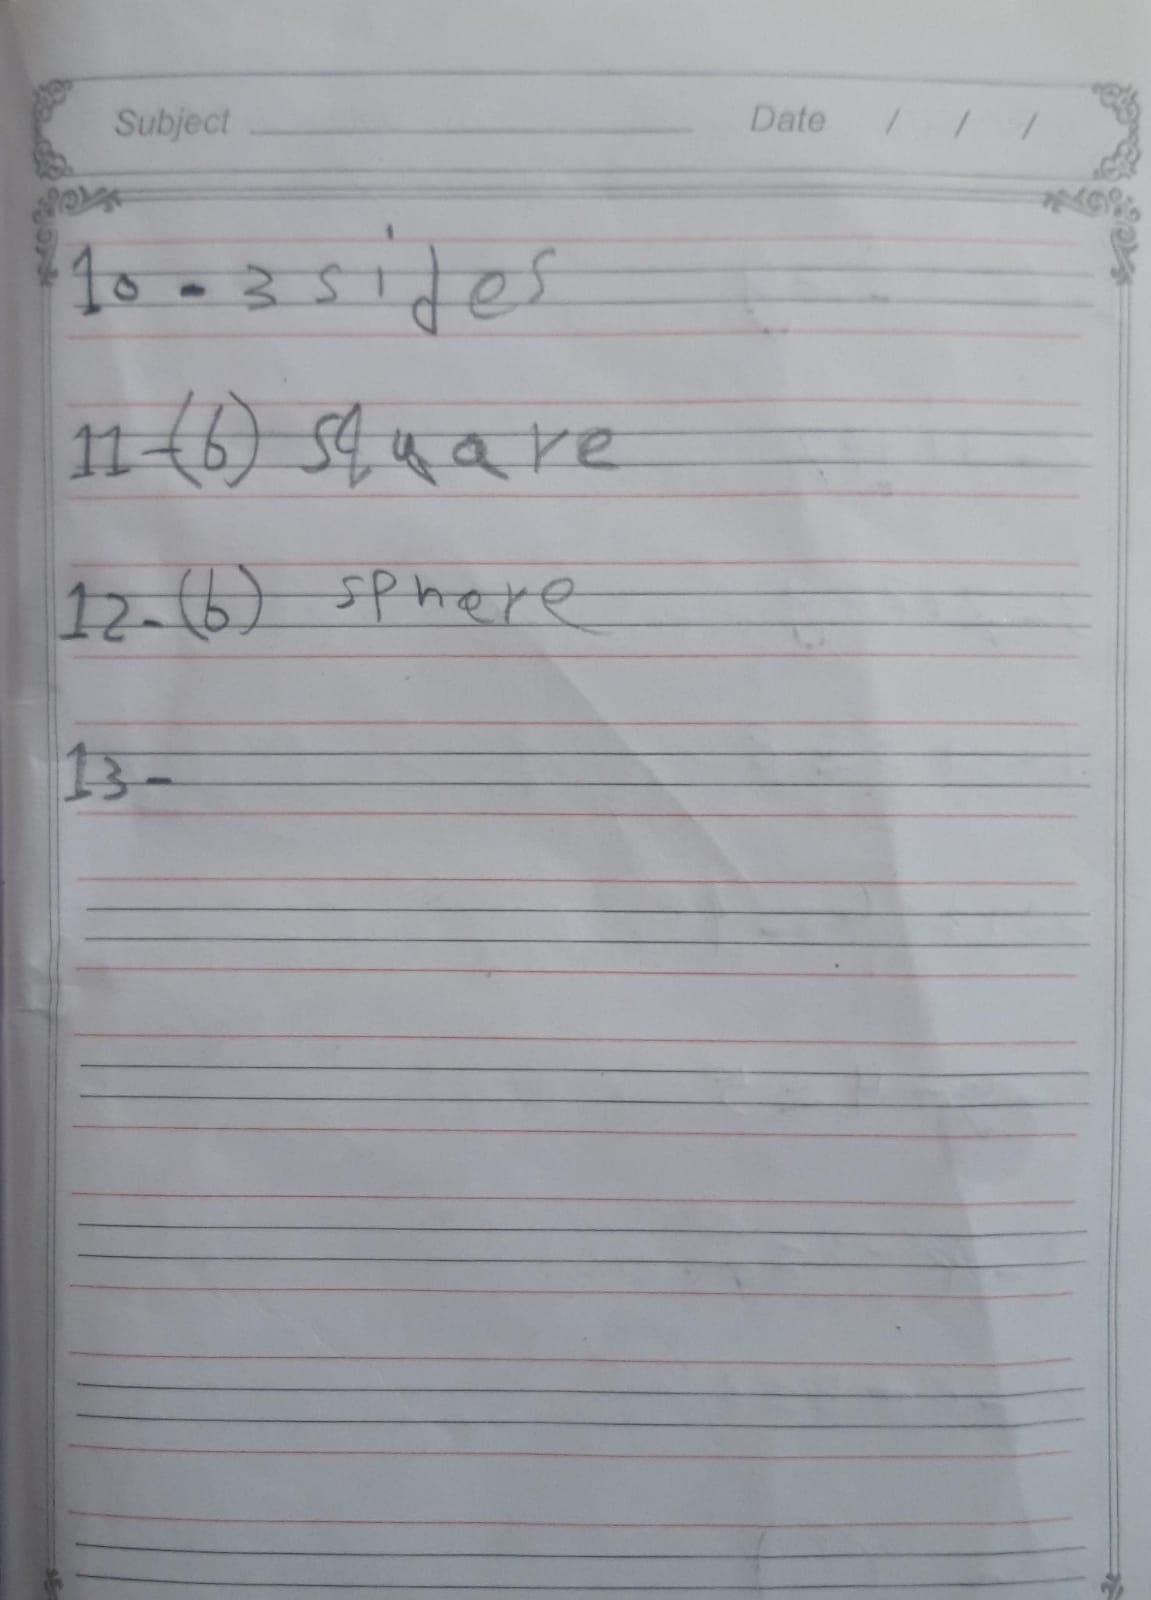 Subject Date / / /
10 - 3 sides
11 - (b) square
12 - (b) sphere
13 -